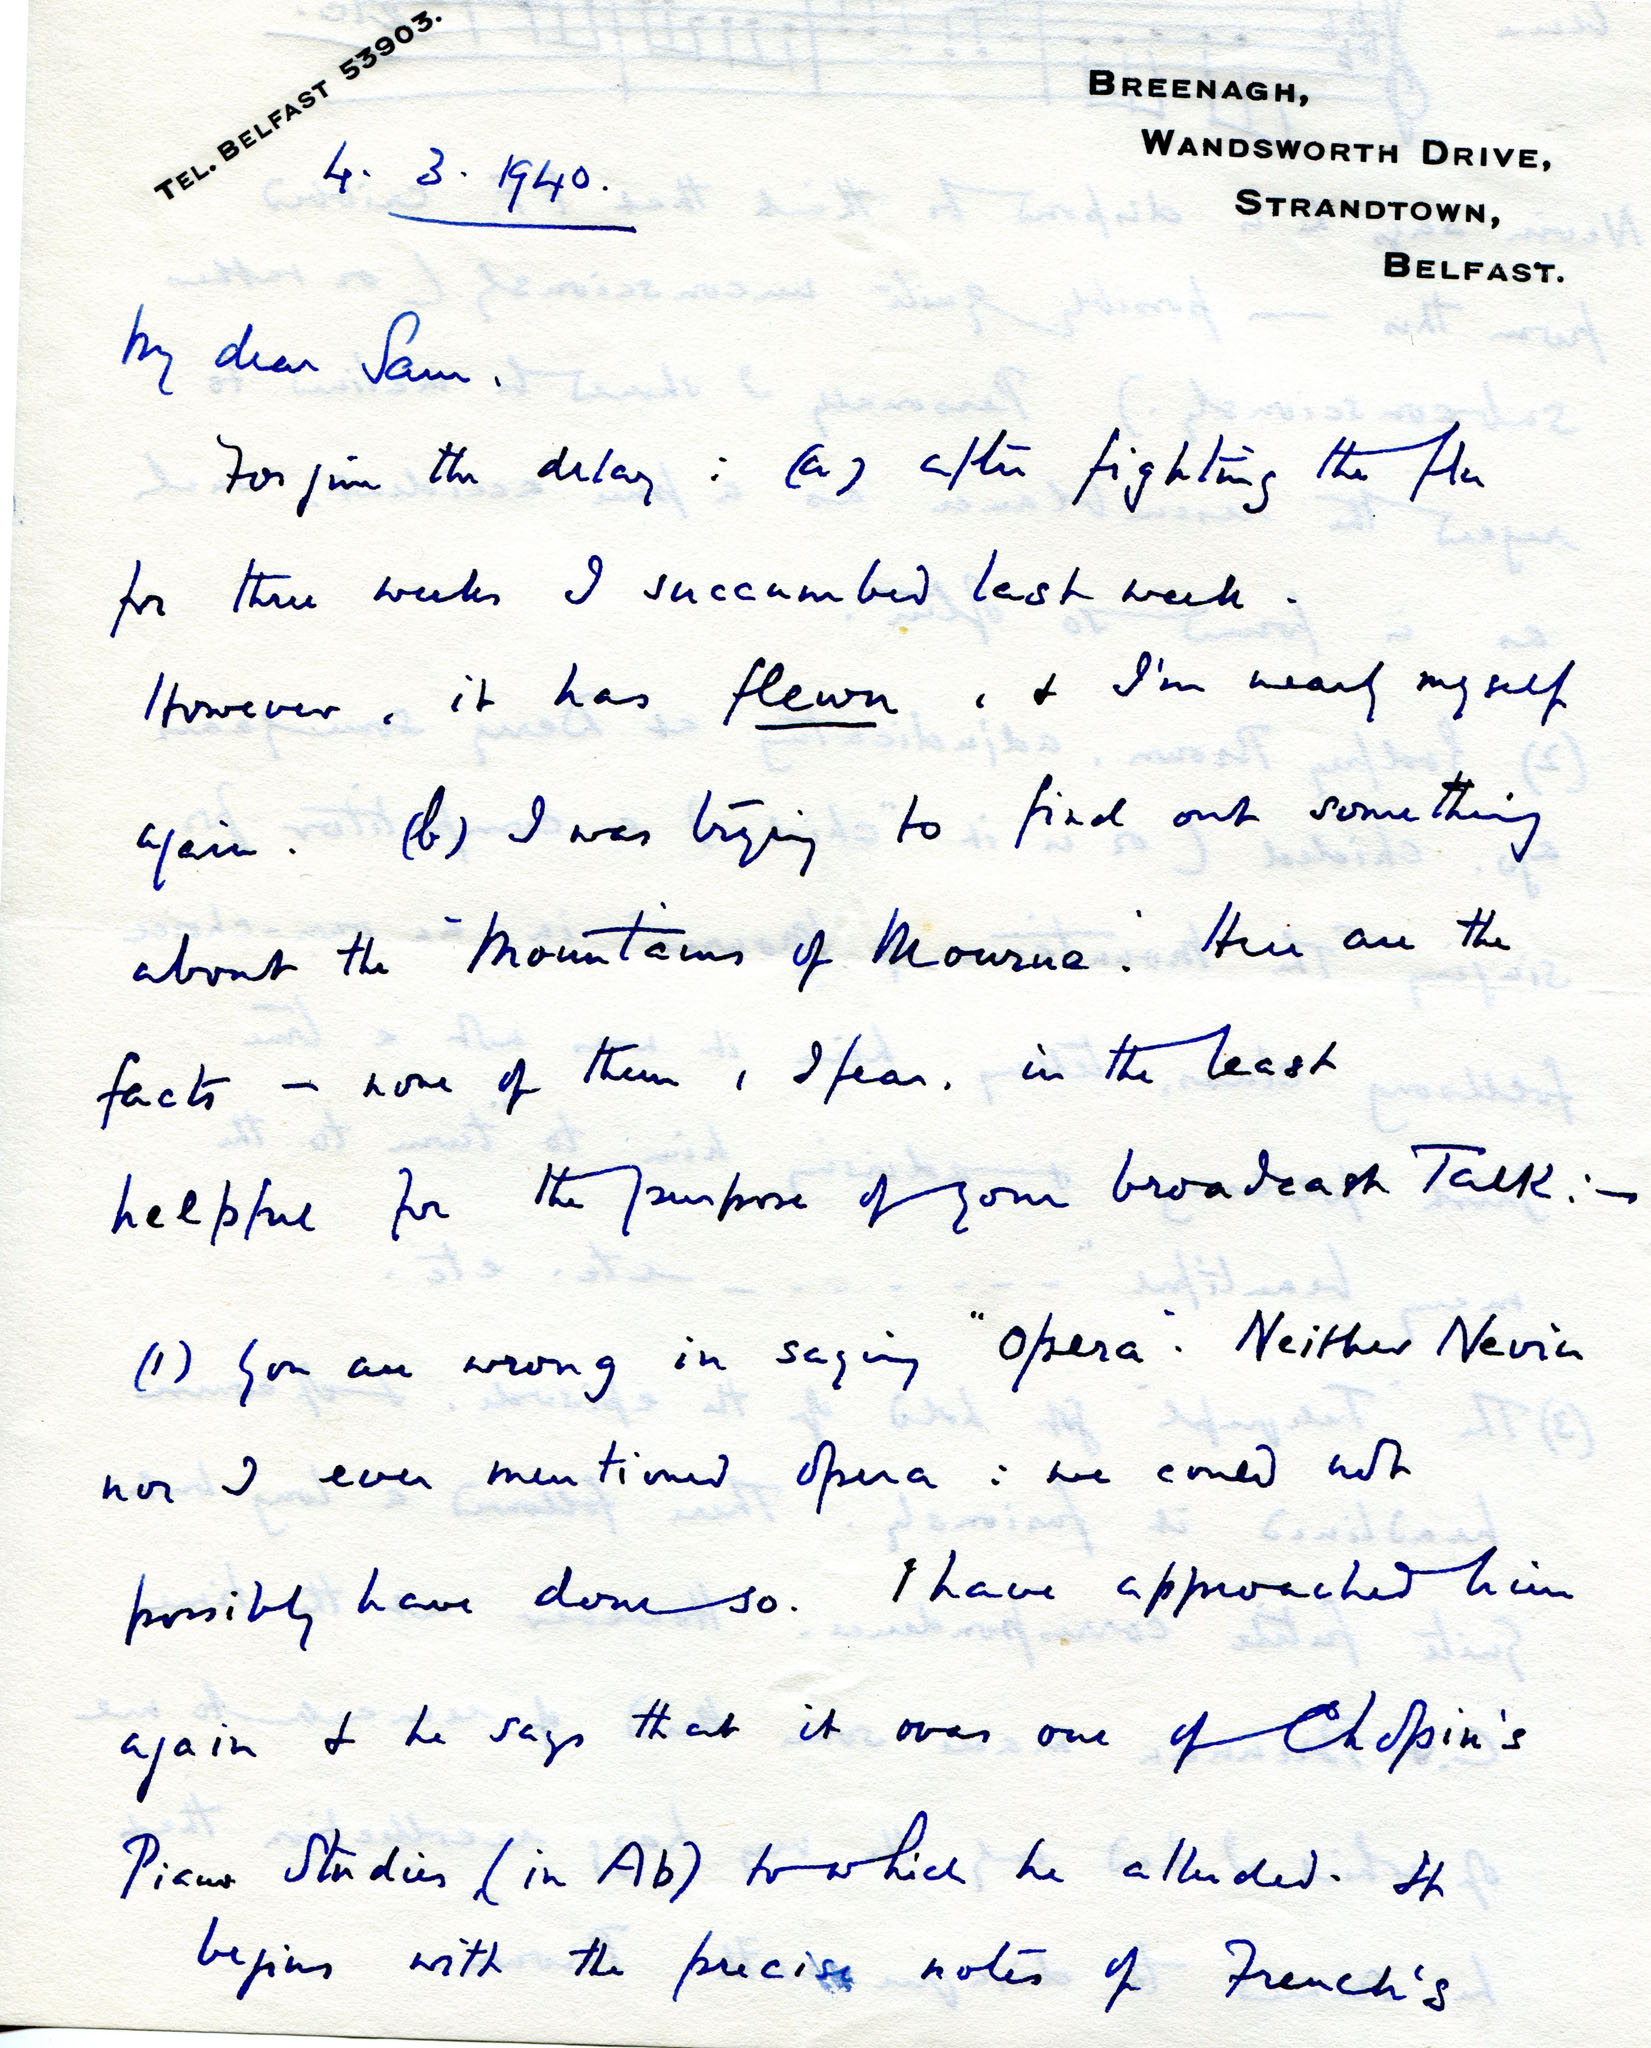 TEL. BELFAST 53903.
BREENAGH,
WANDSWORTH DRIVE,
STRANDTOWN,
BELFAST.
4. 3. 1940.
My dear Sam.
Forgive the delay : (a) after fighting the flu
for three weeks I succumbed last week.
However, it has flewn, & I'm nearly myself
again. (b) I was trying to find out something
about the "Mountains of Mourne". Here are the
facts – none of them, I fear, in the least
helpful for the purpose of your broadcast Talk :–
(1) You are wrong in saying "opera". Neither Nevin
nor I ever mentioned opera : we could not
possibly have done so. I have approached him
again & he says that it was one of Chopin's
Piano Studies (in Ab) to which he alluded. It
begins with the precise notes of French's